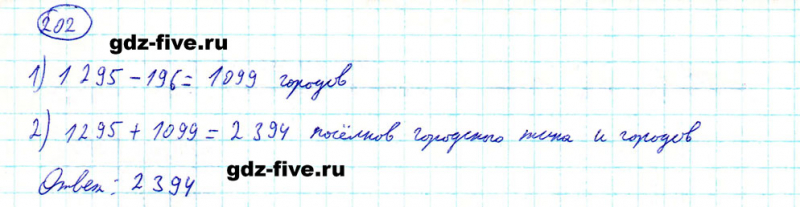 202
gdz-five.ru
1) 1 295 - 196 = 1099 городов
2) 1295 + 1099 = 2 394 посёлков городского типа и городов
Ответ: 2 394
gdz-five.ru